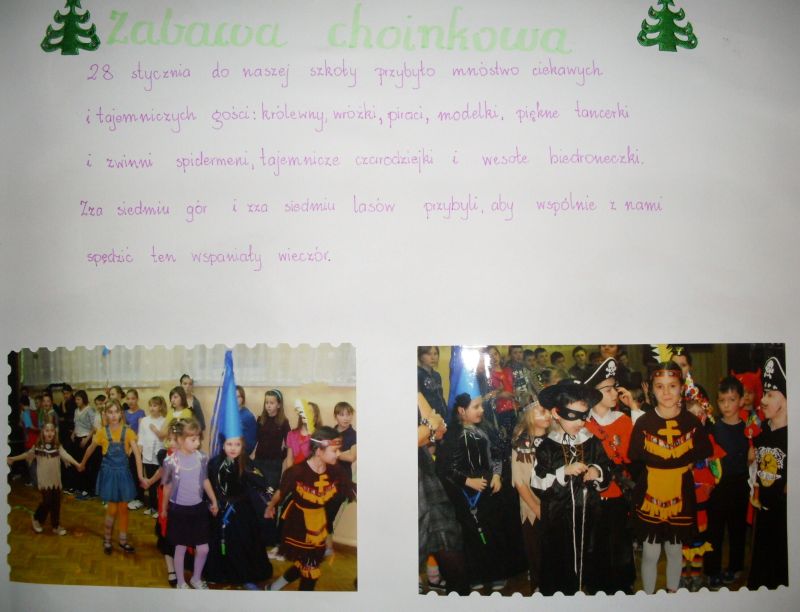 Zabawa choinkowa
28 stycznia do naszej szkoły przybyło mnóstwo ciekawych
i tajemniczych gości: królewny, wróżki, piraci, modelki, piękne tancerki
i zwinni spidermeni, tajemnicze czarodziejki i wesołe biedroneczki.
Zza siedmiu gór i zza siedmiu lasów przybyli, aby wspólnie z nami
spędzić ten wspaniały wieczór.